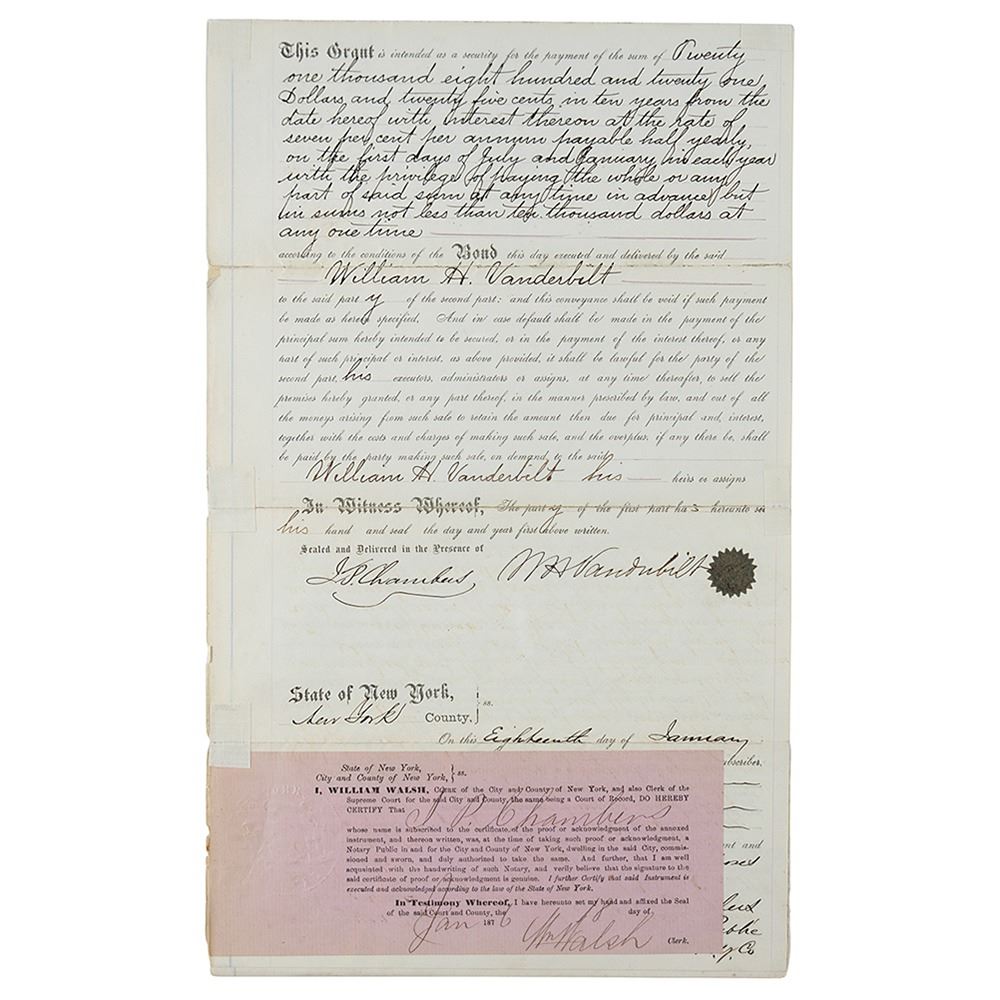 This Grant is intended as a security for the payment of the sum of Twenty
one thousand eight hundred and twenty one
Dollars and twenty five cents in ten years from the
date hereof with interest thereon at the rate of
seven per cent per annum payable half yearly,
on the first days of July and January in each year
with the privilege of paying the whole or any
part of said sum at any time in advance but
in sums not less than ten thousand dollars at
any one time
according to the conditions of the Bond this day executed and delivered by the said
William H. Vanderbilt
to the said party of the second part: and this conveyance shall be void if such payment
be made as herein specified. And in case default shall be made in the payment of the
principal sum hereby intended to be secured, or in the payment of the interest thereof, or any
part of such principal or interest, as above provided, it shall be lawful for the party of the
second part, his executors, administrators or assigns, at any time thereafter, to sell the
premises hereby granted, or any part thereof, in the manner prescribed by law, and out of all
the moneys arising from such sale to retain the amount then due for principal and, interest,
together with the costs and charges of making such sale, and the overplus, if any there be, shall
be paid by the party making such sale, on demand, to the said
William H. Vanderbilt his heirs or assigns
In Witness Whereof, The party of the first part has hereunto set
his hand and seal the day and year first above written.
Sealed and Delivered in the Presence of
J. P. Chambers WH Vanderbilt
State of New York,
New York County. } ss.
On this Eighteenth day of January
subscriber,
State of New York,
City and County of New York, } ss.
I, WILLIAM WALSH, Clerk of the City and County of New York, and also Clerk of the
Supreme Court for the said City and County, the same being a Court of Record, DO HEREBY
CERTIFY That J. P. Chambers
whose name is subscribed to the certificate of the proof or acknowledgment of the annexed
instrument, and thereon written, was, at the time of taking such proof or acknowledgment, a
Notary Public in and for the City and County of New York, dwelling in the said City, commis-
sioned and sworn, and duly authorized to take the same. And further, that I am well
acquainted with the handwriting of such Notary, and verily believe that the signature to the
said certificate of proof or acknowledgment is genuine. I further Certify that said Instrument is
executed and acknowledged according to the law of the State of New York.
In Testimony Whereof, I have hereunto set my hand and affixed the Seal
of the said Court and County, the day of
Jan 1876 Wm Walsh Clerk.